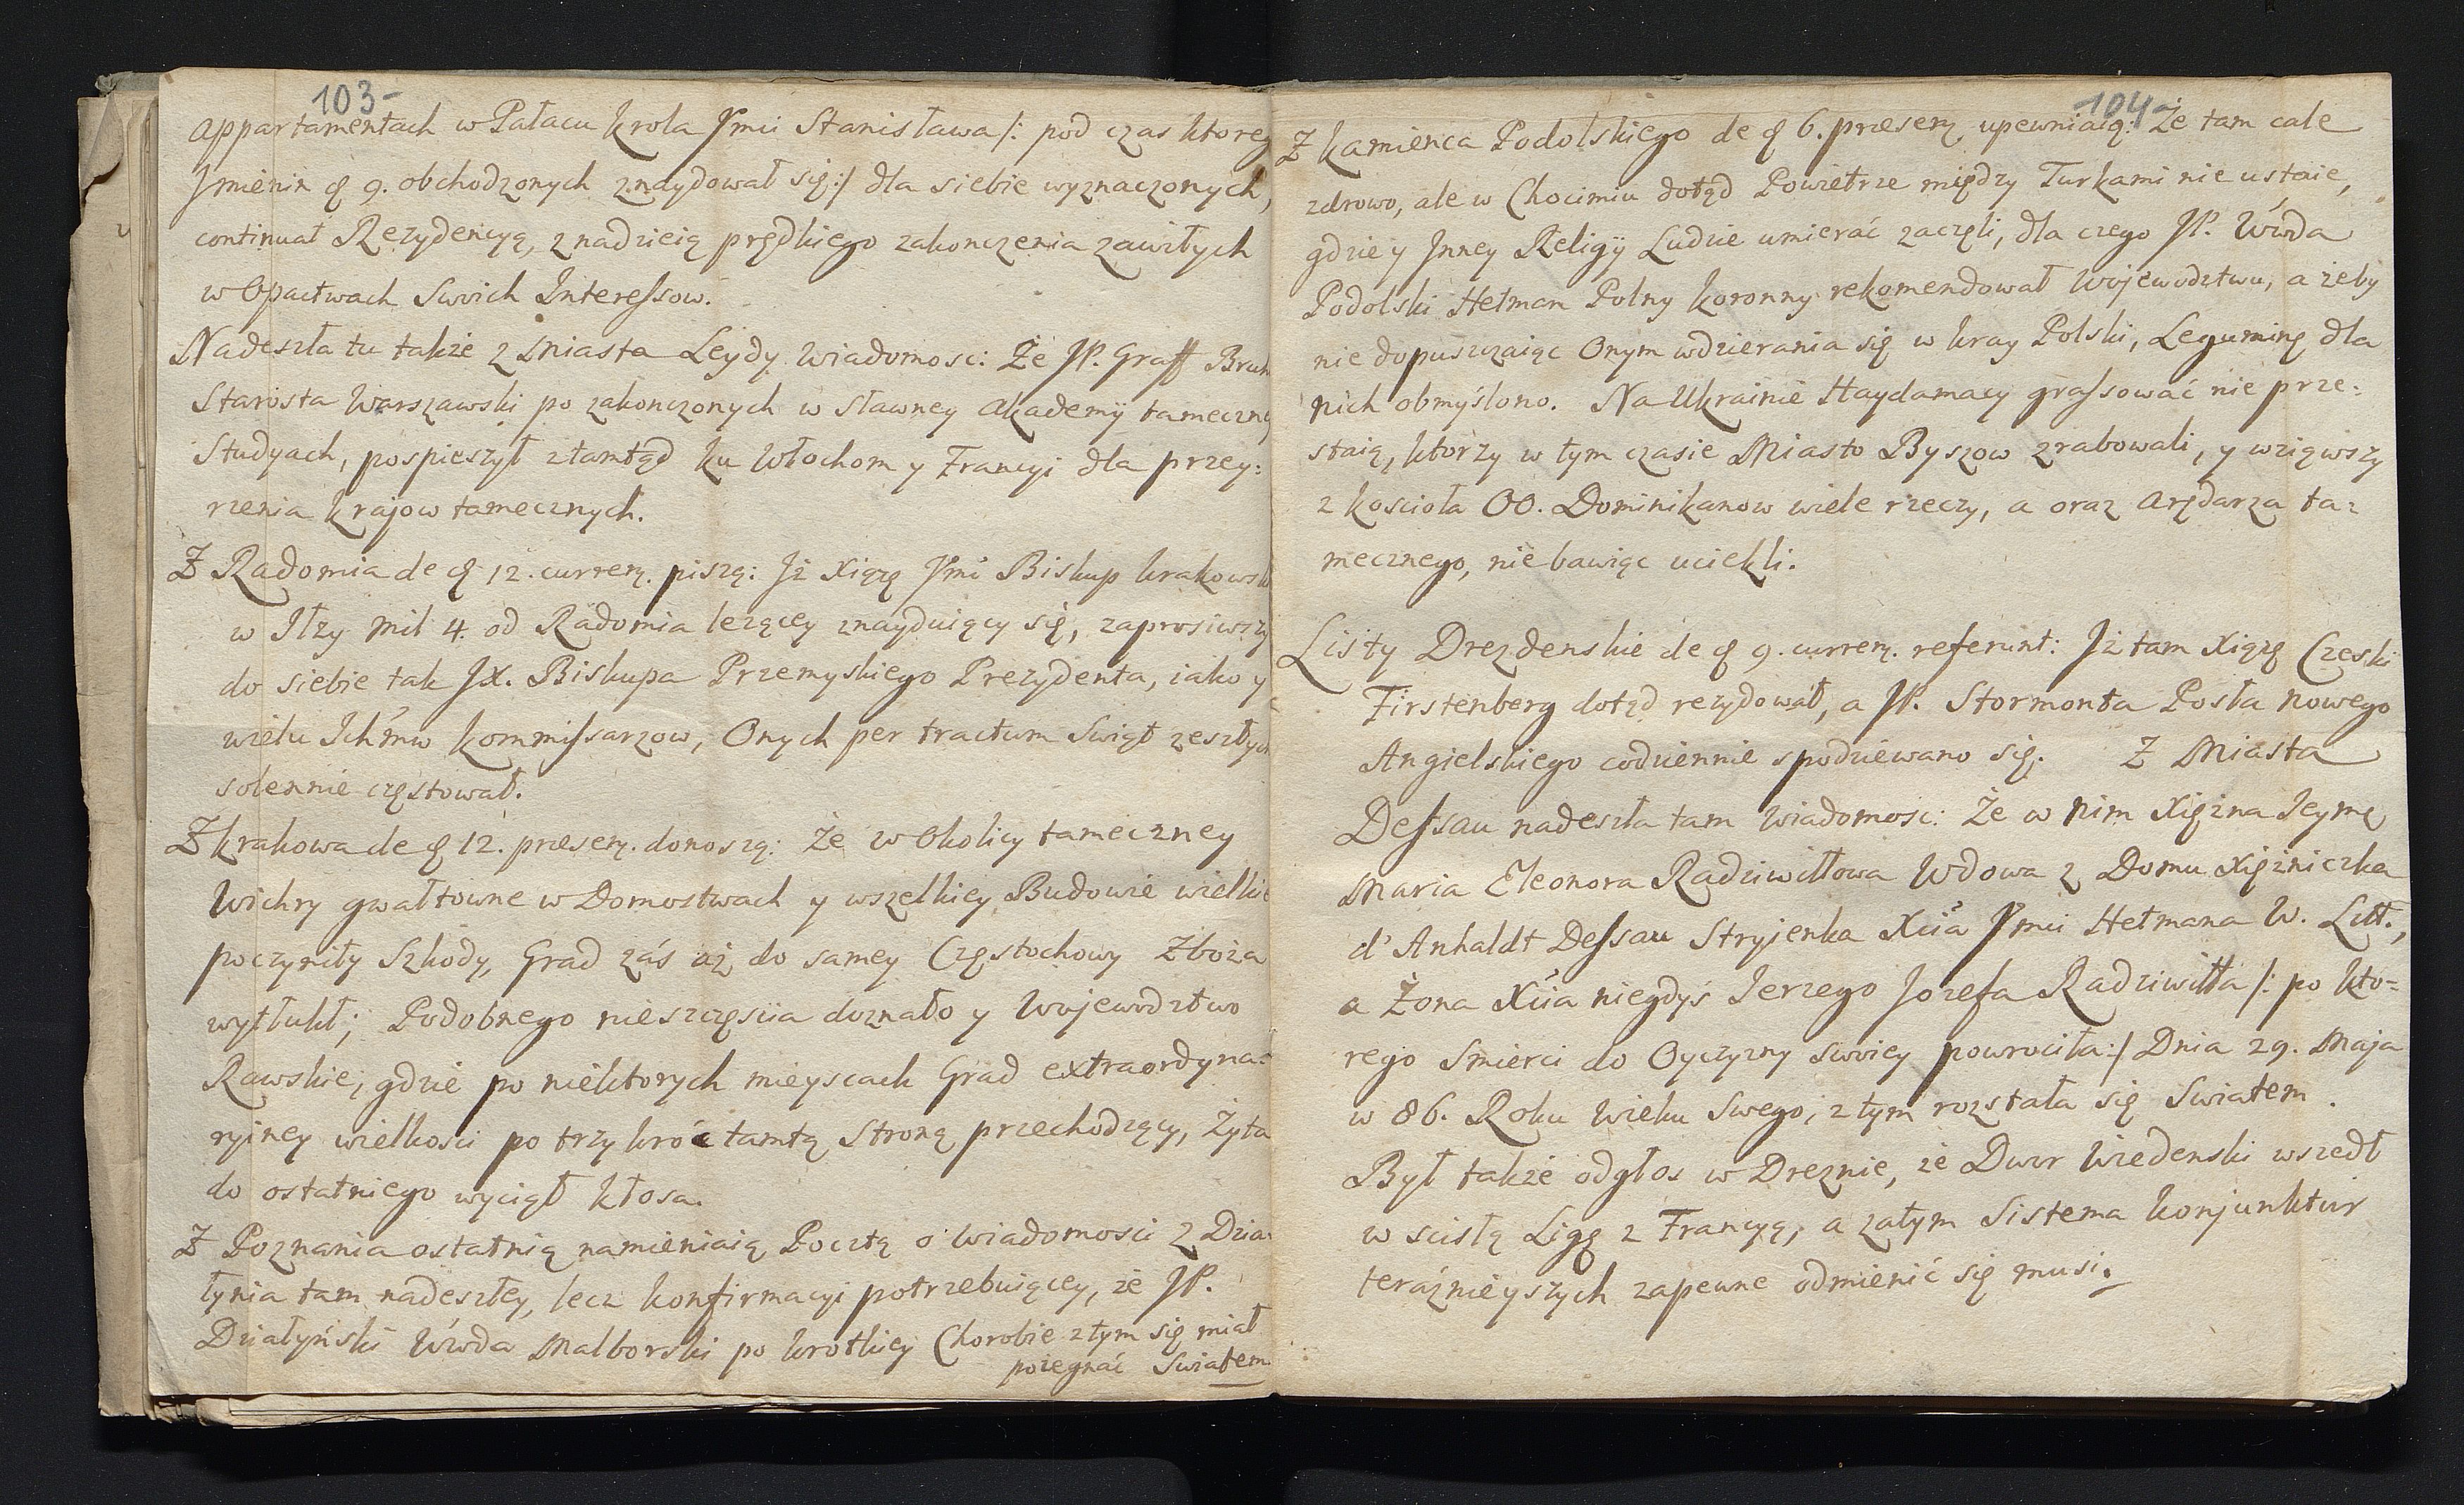 103-
appartamentach w Pałacu krola Jmci Stanisława /: pod czas ktoreg
Jmienin d 9. obchodzonych znaydował się :/ dla siebie wyznaczonych,
continuat Rezydencyą, z nadzieią prędkiego zakonczenia zawiłych
w Opactwach Swoich Interessow.
Nadeszła tu także z Miasta Leydy Wiadomosc: Że JP. Graff Bruh
Starosta Warszawski po zakonczonych w sławney Akademÿ tameczney
Studyach, pospieszył ztamtąd ku Włochom y Francyi dla przey:
rzenia krajow tamecznych.
Z Radomia de d 12. curren. piszą: Jż Xiążę Jmć Biskup krakowski
w Jłzy Mil 4. od Radomia leżącey znayduiący się, zaprosiwszy
do siebie tak JX. Biskupa Przemyskiego Prezydenta, iako y
wielu Ichmw kommissarzow, Onych per tractum Swiąt zeszłych
solennie częstował.
Z krakowa de d 12. præsen. donoszą: Że w Okolicy tameczney
Wichry gwałtowne w Domostwach y wszelkiey Budowie wielkie
poczyniły Szkody, Grad zaś aż do samey Częstochowy Zboża
wytłukł; Podobnego nieszczęscia doznało y Wojewodztwo
Rawskie, gdzie po niektorych mieyscach Grad extraordyna:
ryiney wielkosci po trzykroć tamtą Stroną przechodzący, Żyta
do ostatniego wyciął kłosa.
Z Poznania ostatnią namieniaią Pocztą o Wiadomosci z Dzia:
łynia tam nadeszłey, lecz konfirmacyi potrzebuiącey, że JP.
Działyński Wwda Malborski po krotkiey Chorobie z tym się miał
pożegnać Swiatem.
104
Z kamienca Podolskiego de d 6. præsen. upewniaią: Że tam cale
zdrowo, ale w Chocimiu dotąd Powietrze między Turkami nie ustaie,
gdzie y Jnney Religÿ Ludzie umierać zaczęli, dla czego JP. Wwda
Podolski Hetman Polny koronny rekomendował Wojewodztwu, a żeby
nie dopuszczaiąc Onym wdzierania się w kray Polski, Leguminę dla
nich obmyślono. Na Ukrainie Haydamacy grassować nie prze:
staią, ktorzy w tym czasie Miasto Byszow zrabowali, y wziąwszy
z kościoła OO. Dominikanow wiele rzeczy, a oraz Arędarza ta:
mecznego, nie bawiąc uciekli.
Listy Drezdenskie de d 9. curren. referunt: Jż tam Xiążę Czeski
Firstenberg dotąd rezydował, a JP. Stormonta Posła Nowego
Angielskiego codziennie spodziewano się. Z Miasta
Dessau nadeszła tam Wiadomosc: Że w nim Xiężna Jeymć
Maria Eleonora Radziwiłłowa Wdowa z Domu Xiężniczka
d'Anhaldt Dessau Stryjenka Xcia Jmci Hetmana W. Litt.,
a Żona Xcia niegdyś Jerzego Jozefa Radziwiłła /: po kto-
rego Smierci do Oyczyzny swoiey powrociła :/ Dnia 29. Maja
w 86. Roku Wieku Swego, z tym rozstała się Swiatem.
Był także odgłos w Dreznie, że Dwor Wiedenski wszedł
w scisłą Ligę z Francyą, a zatym Sistema konjunktur
teraźnieyszych zapewne odmienić się musi.